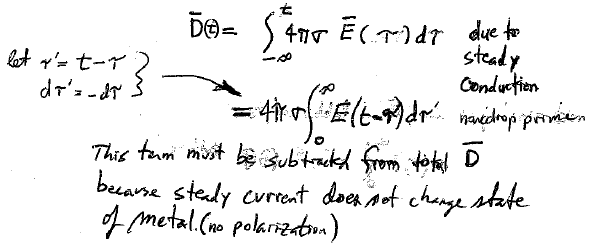 D̄(t) = ∫_{-∞}^{t} 4πσ Ē(τ) dτ due to steady conduction
let τ' = t-τ
dτ' = -dτ
= 4πσ ∫_0^∞ Ē(t-τ') dτ'
This term must be subtracted from total D̄
because steady current does not change state
of metal. (no polarization)